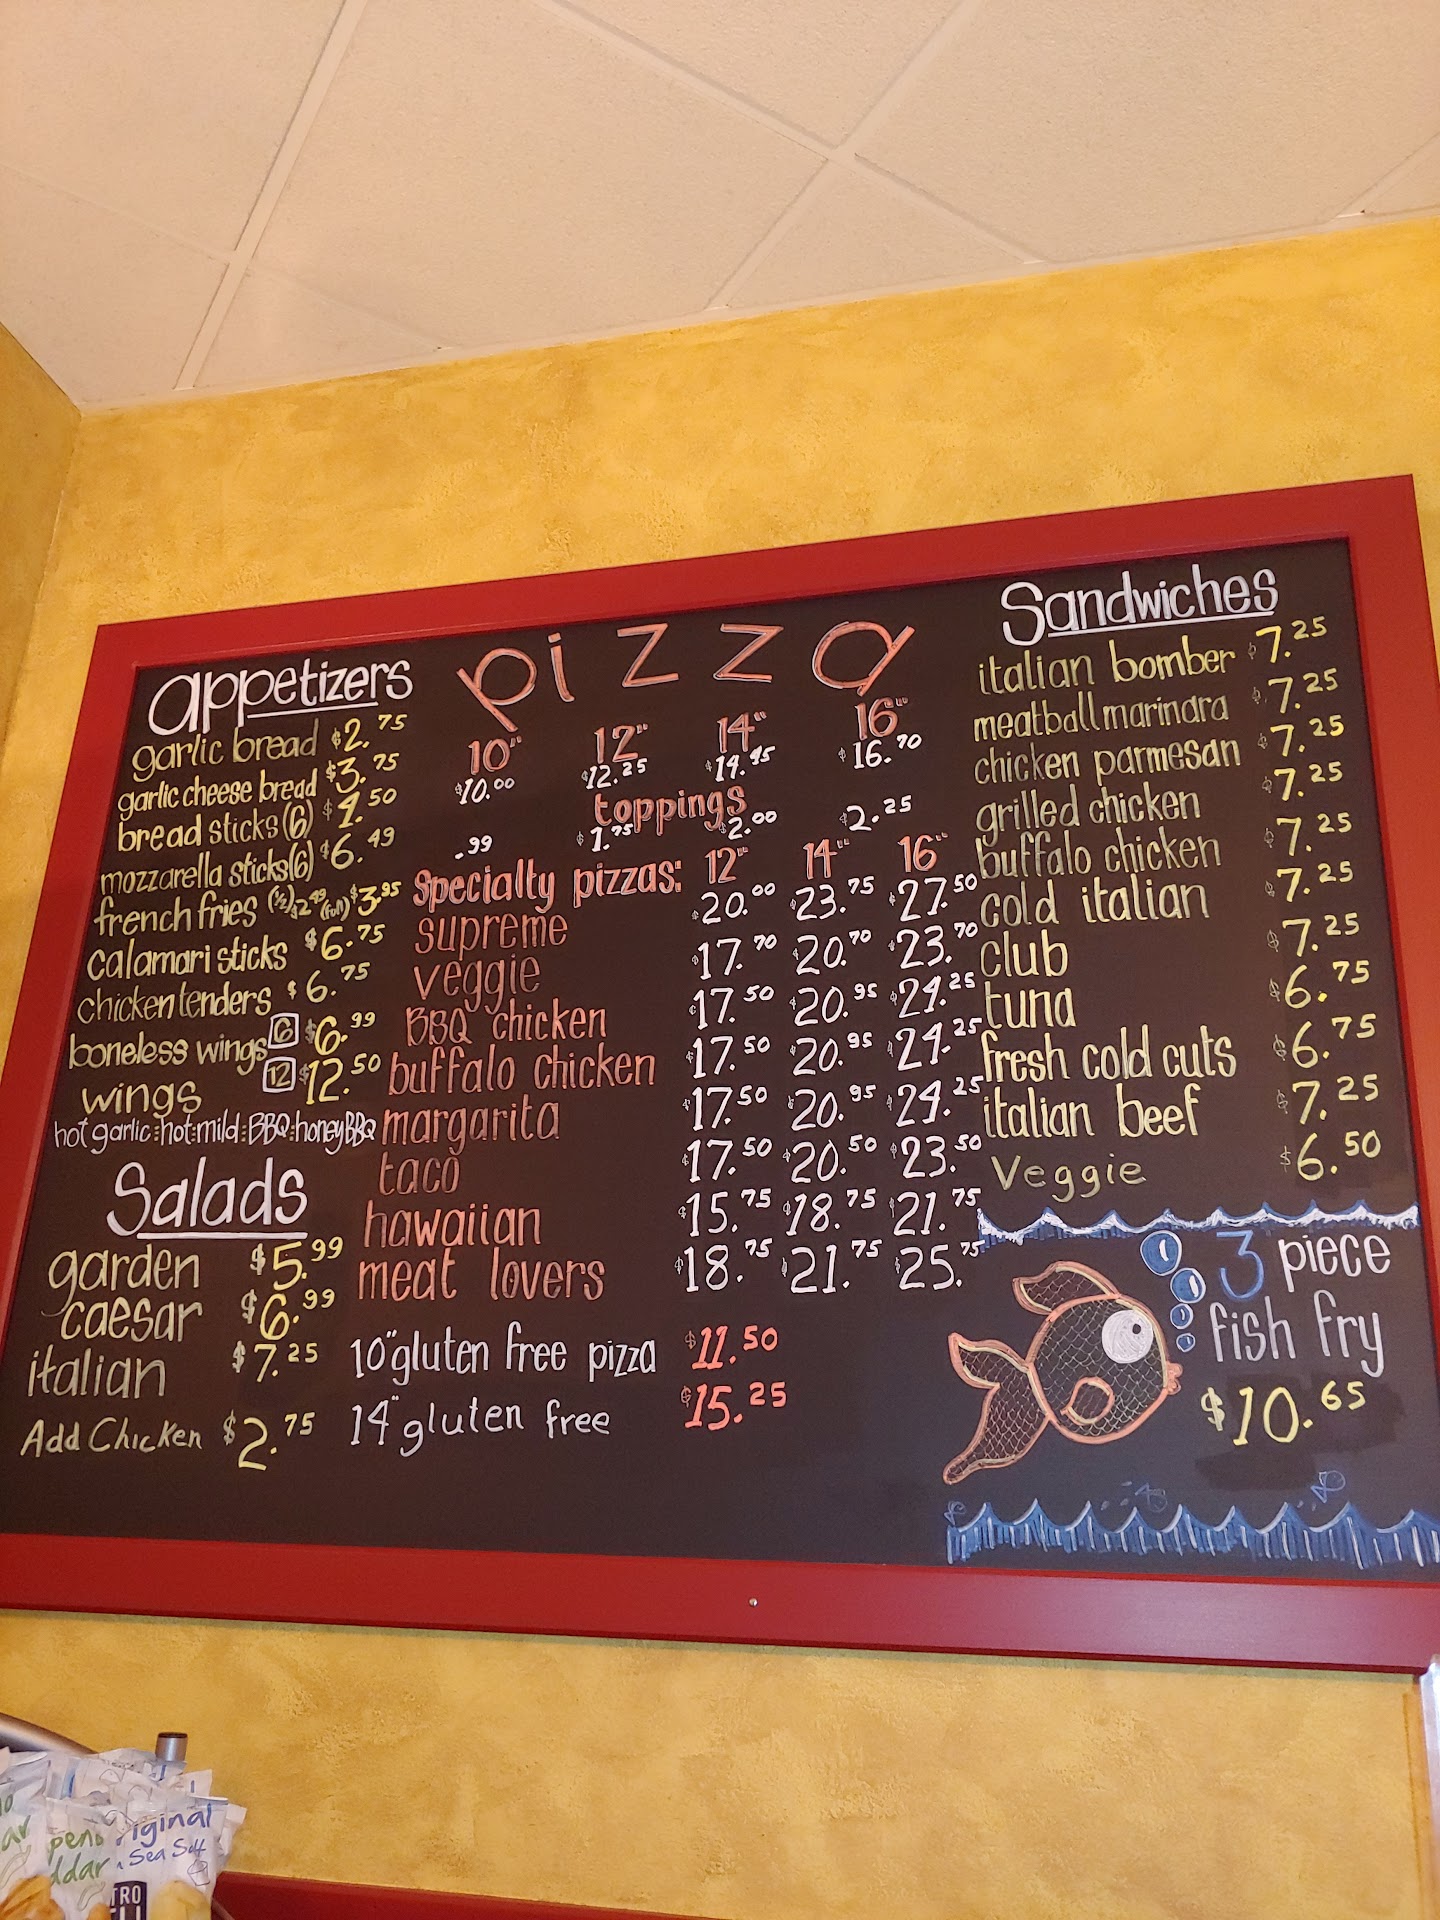 appetizers
garlic bread $2.75
garlic cheese bread $3.75
bread sticks (6) $4.50
mozzarella sticks (6) $6.49
french fries (1/2) $2.49 (full) $3.95
calamari sticks $6.75
chicken tenders $6.75
boneless wings 6 $6.99
wings 12 $12.50
hot garlic : hot : mild : BBQ : honey BBQ
Salads
garden $5.99
caesar $6.99
italian $7.25
Add Chicken $2.75
pizza
10" 12" 14" 16"
$10.00 $12.25 $14.45 $16.70
toppings
.99 $1.75 $2.00 $2.25
Specialty pizzas: 12" 14" 16"
supreme $20.00 $23.75 $27.50
veggie $17.70 $20.70 $23.70
BBQ chicken $17.50 $20.95 $24.25
buffalo chicken $17.50 $20.95 $24.25
margarita $17.50 $20.95 $24.25
taco $17.50 $20.50 $23.50
hawaiian $15.75 $18.75 $21.75
meat lovers $18.75 $21.75 $25.75
10" gluten free pizza $11.50
14" gluten free $15.25
Sandwiches
italian bomber $7.25
meatball marinara $7.25
chicken parmesan $7.25
grilled chicken $7.25
buffalo chicken $7.25
cold italian $7.25
club $7.25
tuna $6.75
fresh cold cuts $6.75
italian beef $7.25
Veggie $6.50
3 piece
fish fry
$10.65
Sea Salt